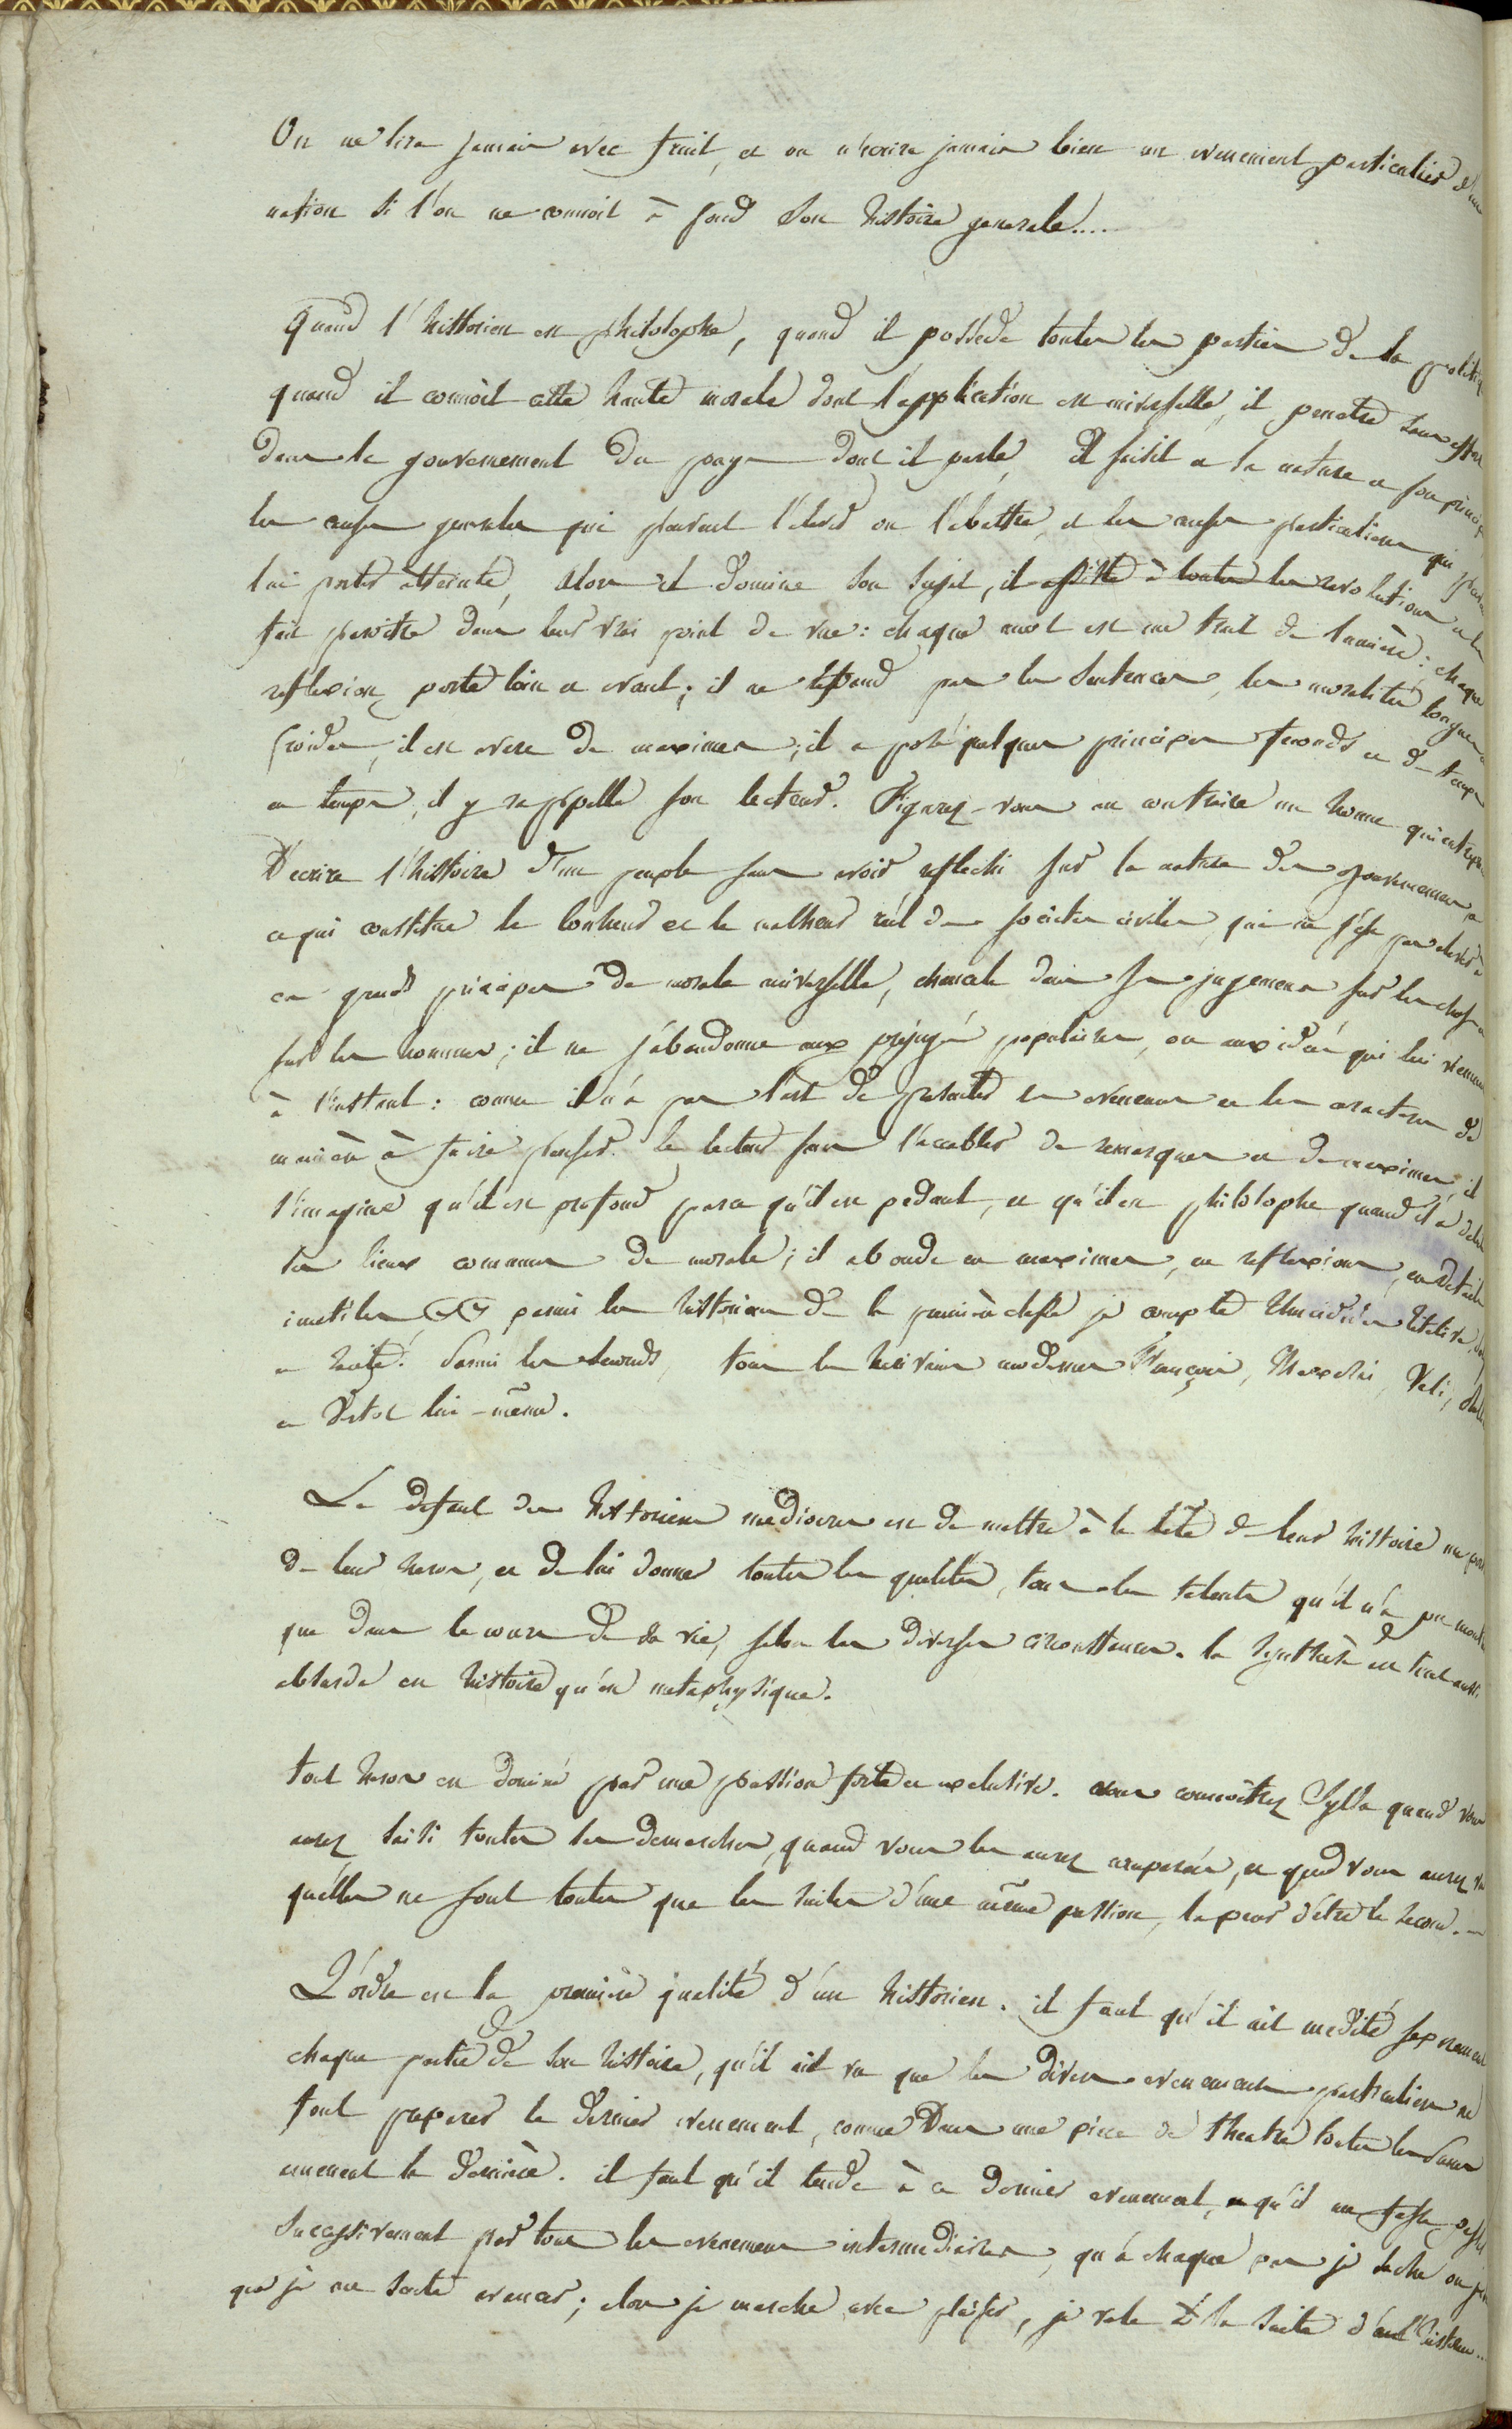 On ne lira jamais avec fruit, et on n'ecrira jamais bien un evenement particulier d'une
nation si l'on ne connoit à fond son histoire generale....
Quand l'historien est philosophe, quand il possede toutes les parties de la politiq
quand il connoit cette haute morale dont l'application est universelle, il penetre sans effort
dans le gouvernement du pays dont il parle, il saisit et la nature et son princip
les causes generales qui peuvent l'elever ou l'abattre, et les causes particulieres qui peuv
lui porter atteinte, alors il domine son sujet, il assiste à toutes les revolutions et les
fait paroitre dans leur vrai point de vue: chaque mot est un trait de lumière: chaque
reflexion porte loin et avant; il ne repand pas les sentences, les moralités longues
froides, il est avare de maximes; il a posé quelques principes feconds et de temps
en temps, il y rappelle son lecteur. Figurez-vous au contraire un homme qui entrepr
d'ecrire l'histoire d'un peuple sans avoir reflechi sur la nature des gouvernemens, à
ce qui constitue le bonheur et le malheur réel des sociétés civiles, qui ne s'est pas elevé à
ces grands principes de morale universelle, chancele dans ses jugemens sur les choses
sur les hommes; il ne s'abandonne aux préjugés populaires, ou aux idées qui lui viennent
à l'instant: comme il n'a pas l'art de presenter les evenemens et les caracteres de
manière à faire penser le lecteur sans l'accabler de remarques et de maximes, il
s'imagine qu'il est profond parce qu'il est pedant, et qu'il est philosophe quand il a debit
des lieux communs de morale; il abonde en maximes, en reflexions, en details
inutiles parmi les historiens de la première classe je compte Thucidides Titelive,
et Tacite. Parmi les seconds, tous les ecrivains modernes François, Velli,
et Vertot lui-même.
Le defaut des historiens mediocres est de mettre à la tête de leur histoire un por
de leur heros, et de lui donner toutes les qualités, tous les talents qu'il n'a pu montr
que dans le cours de sa vie, selon les diverses circonstances. la synthèse est tout aussi
absurde en histoire qu'en metaphysique.
tout heros est dominé par une passion forte et exclusive. vous connoitrez Sylla quand vous
aurez saisi toutes ses demarches, quand vous les aurez comparées, et quand vous aurez vu
qu'elles ne sont toutes que les suites d'une même passion, la peur d'être le second.—
L'ordre est la première qualité d'un historien. il faut qu'il ait medité separement
chaque partie de son histoire, qu'il ait vu que les divers evenemens particuliers ne
font preparer le dernier evenement, comme dans une piece de theatre toutes les scenes
amenent la dernière. il faut qu'il tende à ce dernier evenement, et qu'il me fasse passer
successivement par tous les evenemens intermediaires, qu'à chaque pas je sache ou je
que je me sente avancer; alors je marche avec plaisir, je vole à la suite d'un historien...